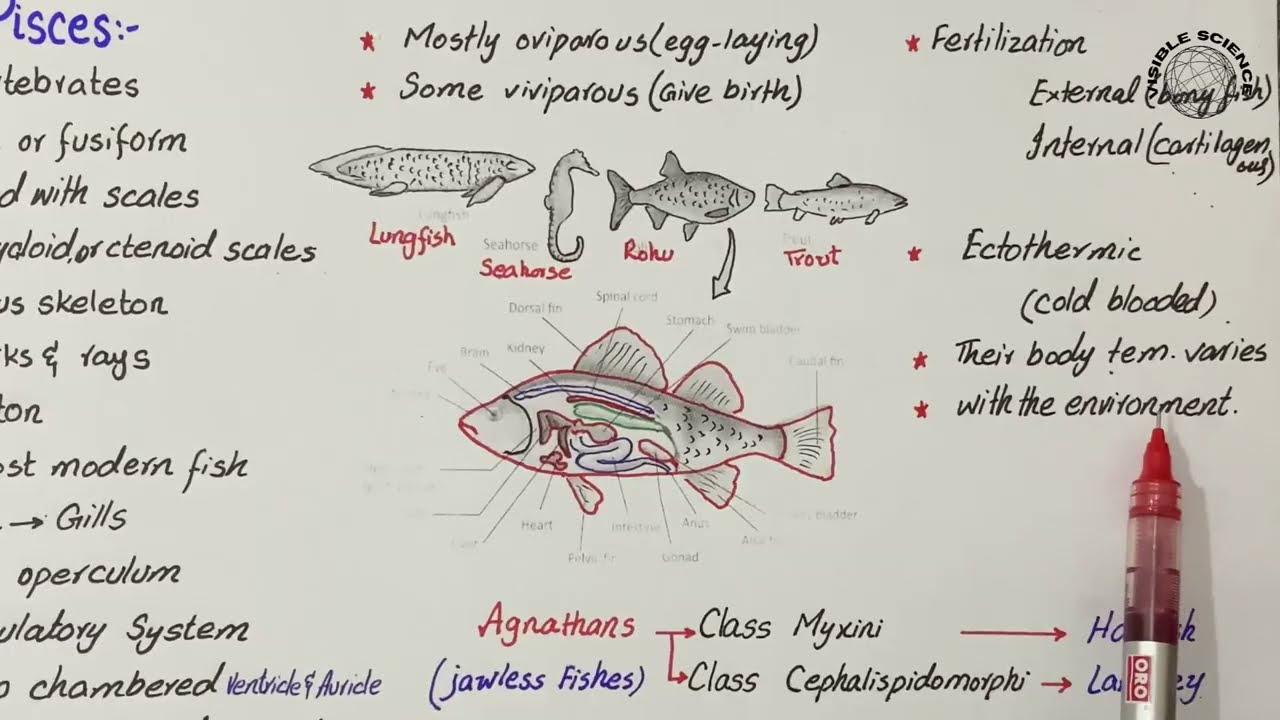 Pisces:-
tebrates
or fusiform
d with scales
ycloid, or ctenoid scales
us skeleton
ks & rays
ton
ost modern fish
→ Gills
operculum
ulatory System
o chambered Ventricle & Auricle
★ Mostly oviparous (egg-laying)
★ Some viviparous (Give birth)
Lungfish
Lungfish
Seahorse
Seahorse
Rohu
Trout
Spinal cord
Dorsal fin
Stomach
Swim bladder
Brain
Kidney
Caudal fin
Eye
Heart
Intestine
Anus
bladder
Pelvic fin
Gonad
Agnathans → Class Myxini →
(jawless Fishes) → Class Cephalispidomorphi →
★ Fertilization
External (bony fish)
Internal (cartilagenous)
★ Ectothermic
(cold blooded)
★ Their body tem. varies
★ with the environment.
VISIBLE SCIENCE
ORO